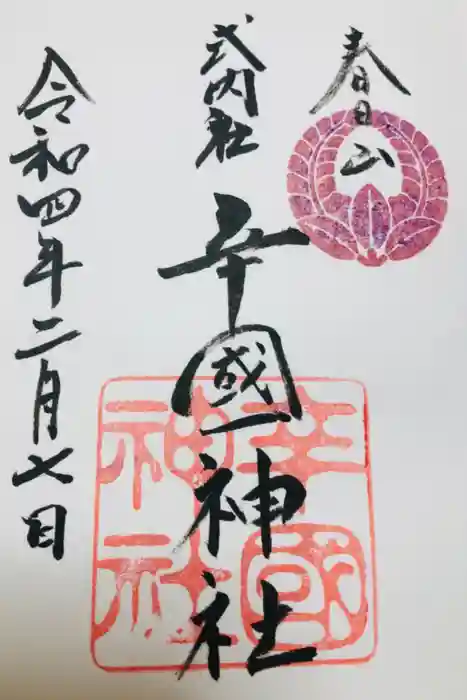 春日山
式内社
辛國神社
令和四年二月七日
辛國神社